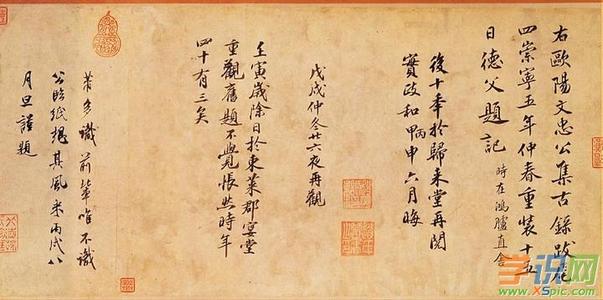 右歐陽文忠公集古錄跋尾
四崇寧五年仲春重裝十五
日德父題記 時在鴻臚直舍
後十年於歸来堂再閱
實政和甲丙申六月晦
戊戌仲冬廿六夜再觀
壬寅歲除日於東萊郡宴堂
重觀舊題不覺悵然時年
四十有三矣
芾多識前輩唯不識
公臨紙想其風采丙戌八
月旦謹題
学识网
www.XSpic.com